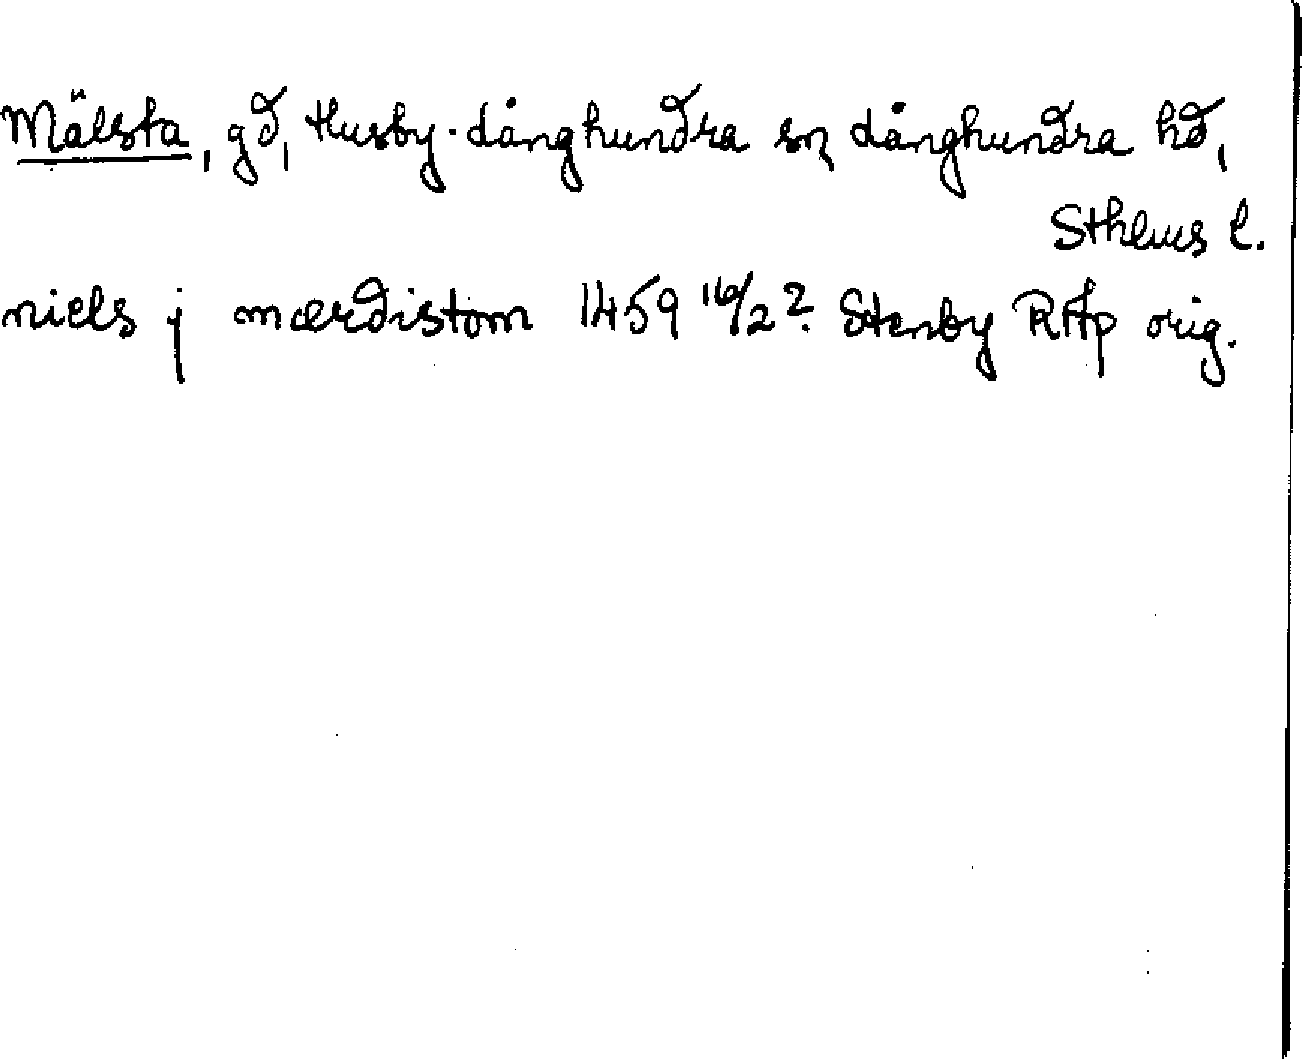 Mälsta, gd, Husby-Långhundra sn Långhundra hd,
Sthlms l.
niels j mærdistom 1459 16/2? Stenby RAp orig.